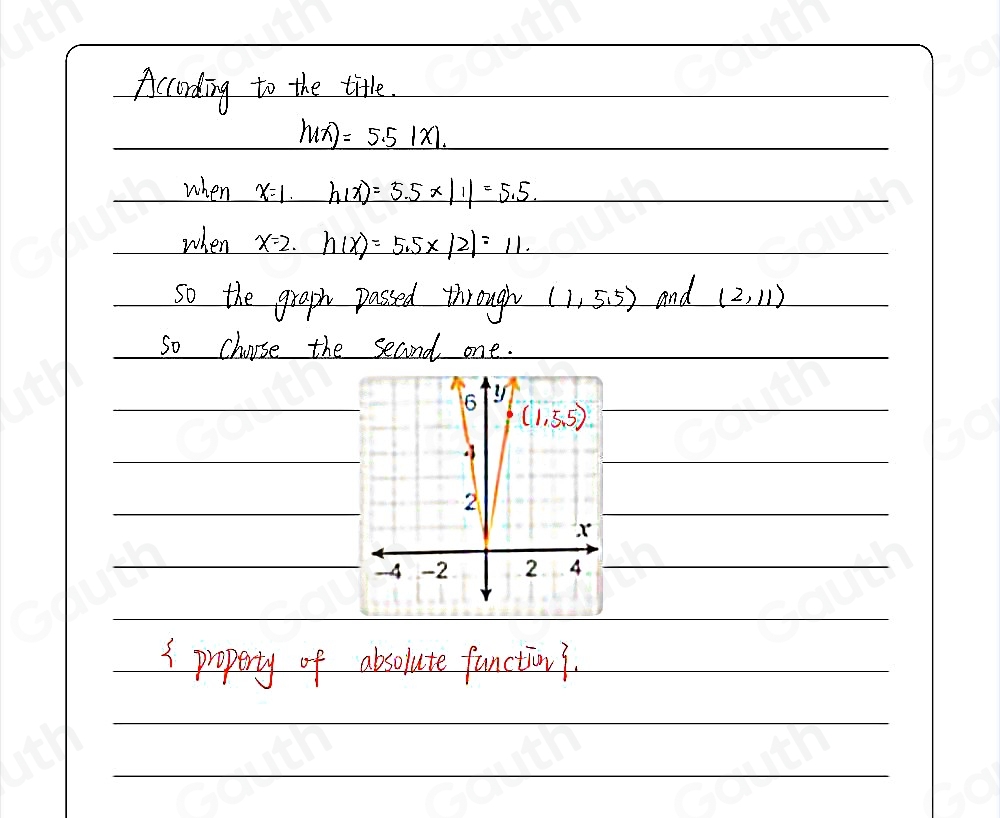 According to the title.
h(x) = 5.5 |x|.
when x=1. h(x) = 5.5 × |1| = 5.5.
when x=2. h(x) = 5.5 × |2| = 11.
So the graph passed through (1, 5.5) and (2, 11)
So choose the second one.
6 y (1, 5.5)
4
2
x
-4 -2 2 4
{ property of absolute function }.
Gauth